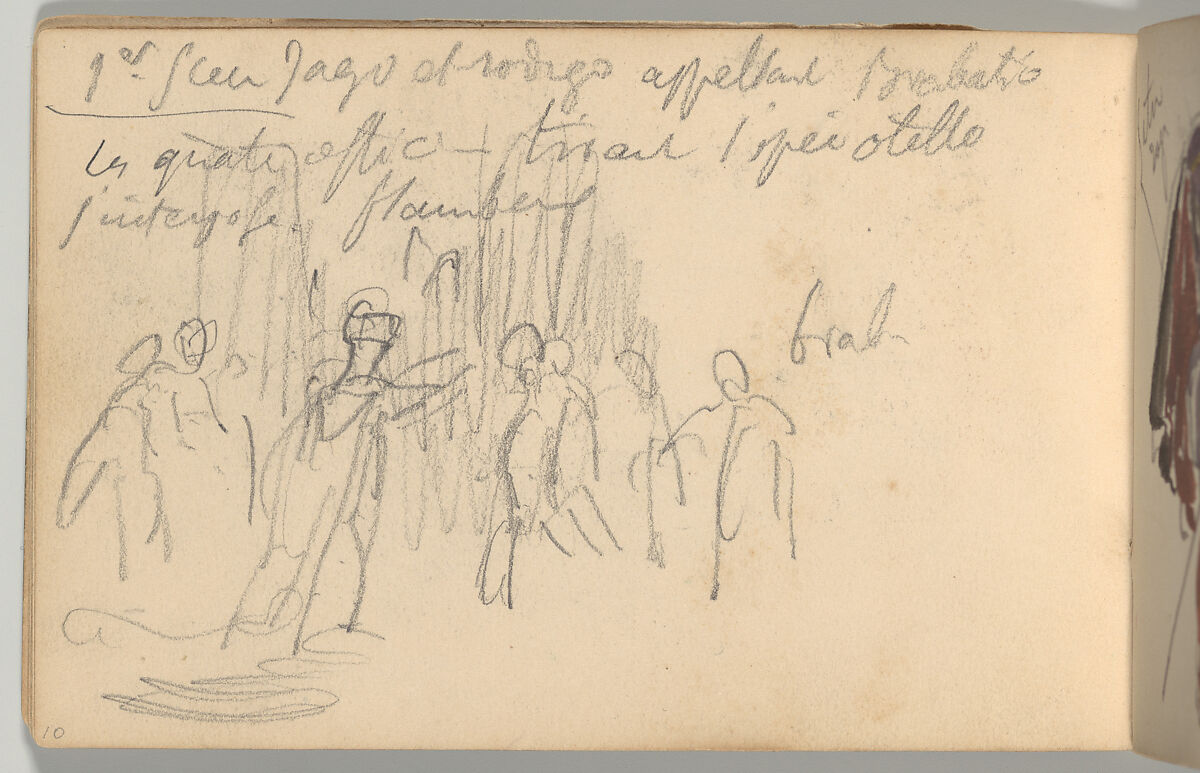 1er Scen Jago et rodrigo appellant Brabatio
les quatre officiers tirant l'epée otello
s'interpose. flambeau
brab
10